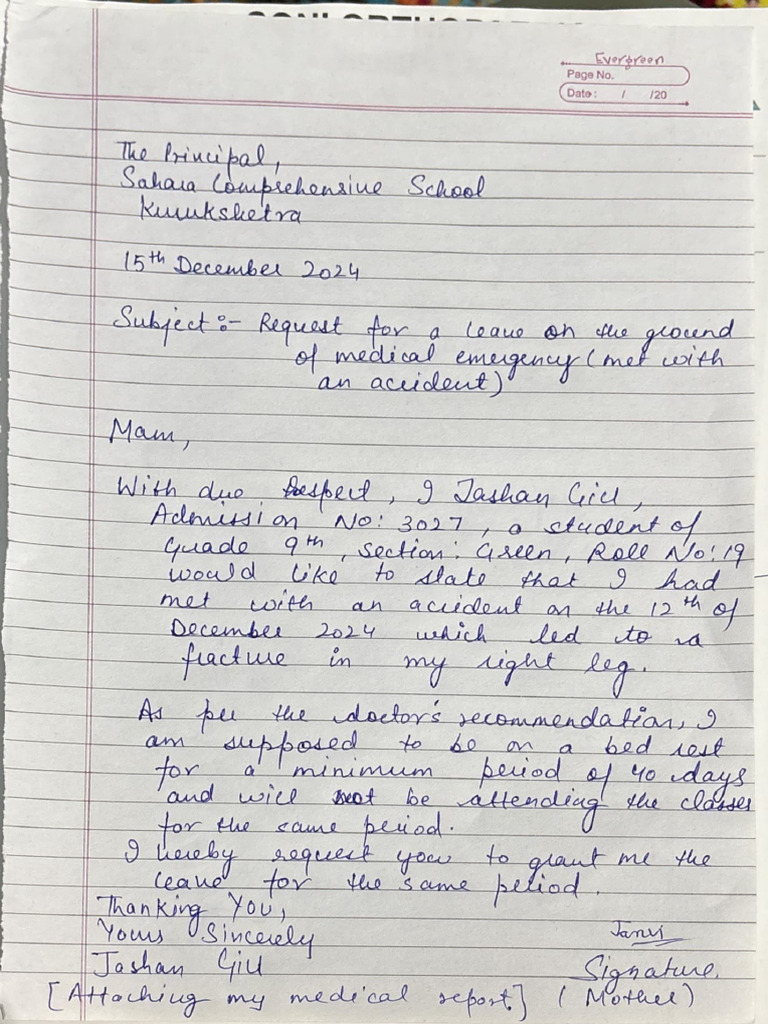 Evergreen
Page No.
Date: / /20
The Principal,
Sahara Comprehensive School
Kurukshetra
15th December 2024
Subject :- Request for a leave on the ground
of medical emergency (met with
an accident)
Mam,
With due Respect, I Jashan Gill,
Admission No: 3027, a student of
Grade 9th, section: Green, Roll No: 19
would like to state that I had
met with an accident on the 12th of
December 2024 which led to a
fracture in my right leg.
As per the doctor's recommendation, I
am supposed to be on a bed rest
for a minimum period of 40 days
and will not be attending the classes
for the same period.
I hereby request you to grant me the
leave for the same period.
Thanking You,
Yours Sincerely
Jashan Gill
Signature
[Attaching my medical report] (Mother)